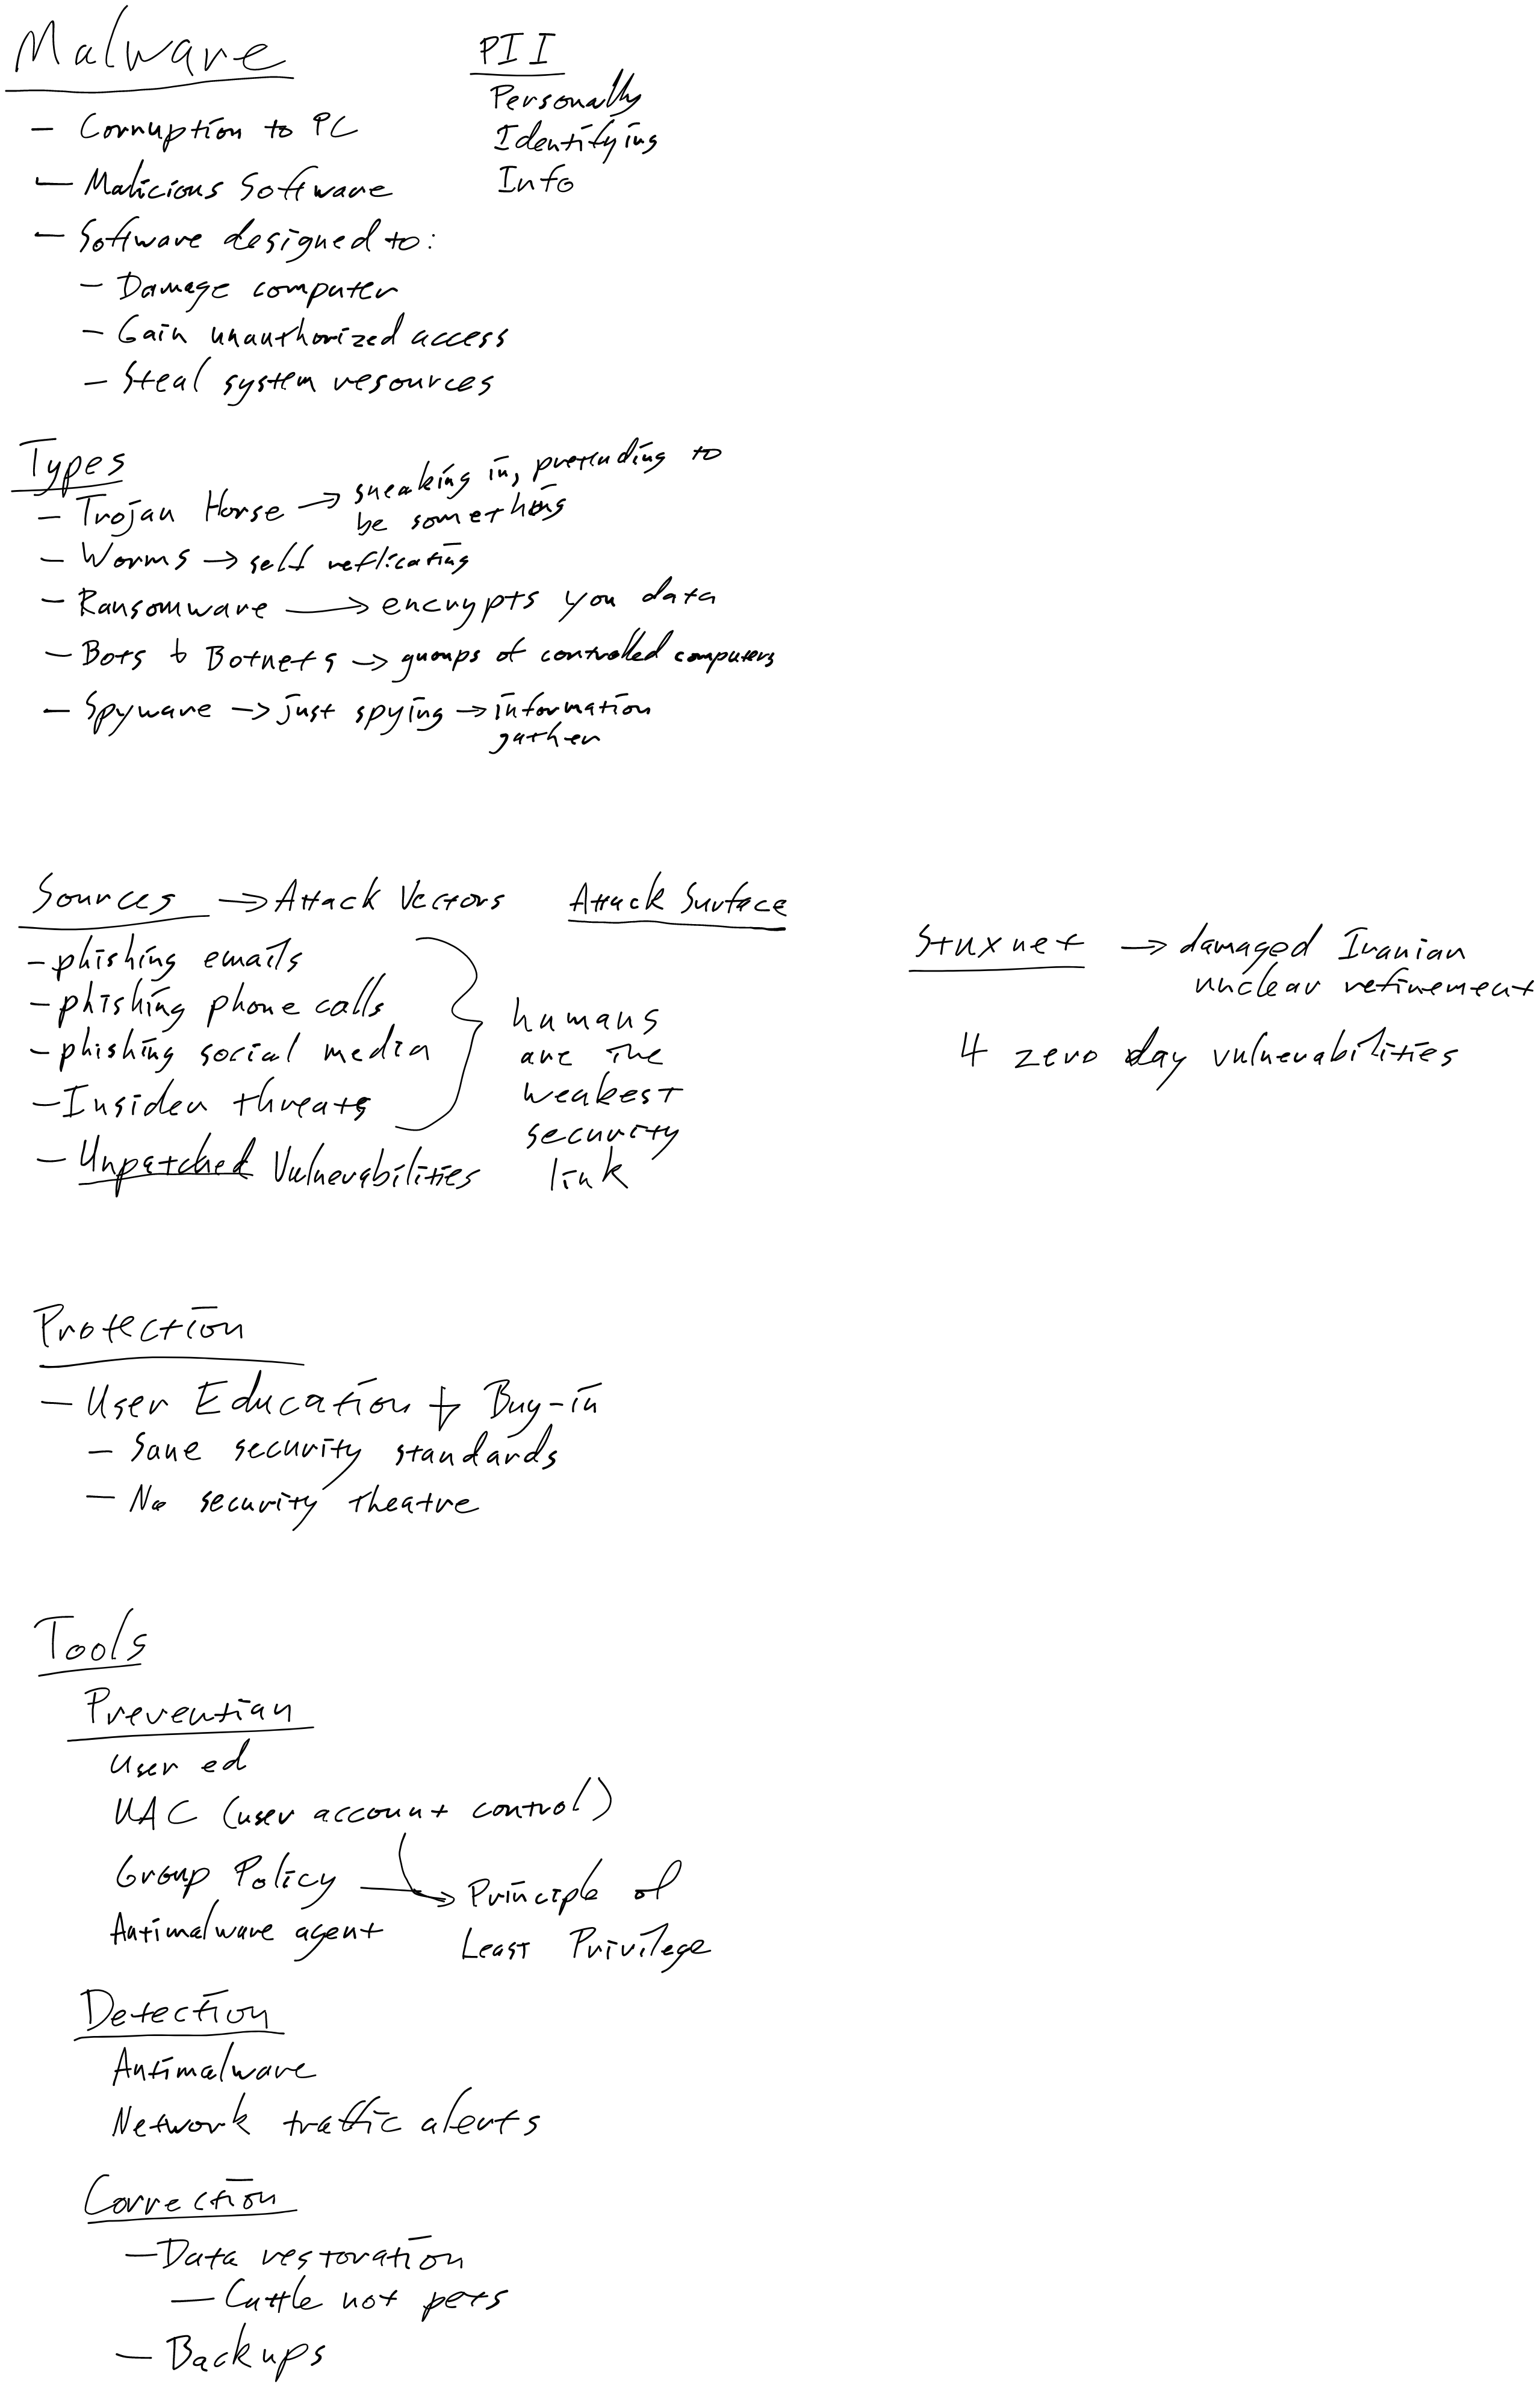 Malware
- Corruption to PC
- Malicious Software
- Software designed to:
- Damage computer
- Gain unauthorized access
- Steal system resources
PII
Personally
Identifying
Info
Types
- Trojan Horse → sneaking in, pretending to
be something
- Worms → self replicating
- Ransomware → encrypts you data
- Bots & Botnets → groups of controlled computers
- Spyware → just spying → information
gather
Sources → Attack Vectors Attack Surface
- phishing emails
- phishing phone calls
- phishing social media
- Insider threats
- Unpatched Vulnerabilities
humans
are the
weakest
security
link
Stuxnet → damaged Iranian
nuclear refinement
4 zero day vulnerabilities
Protection
- User Education & Buy-in
- Sane security standards
- No security theatre
Tools
Prevention
User ed
UAC (user account control)
Group Policy → Principle of
Least Privilege
Antimalware agent
Detection
Antimalware
Network traffic alerts
Correction
- Data restoration
- Cattle not pets
- Backups